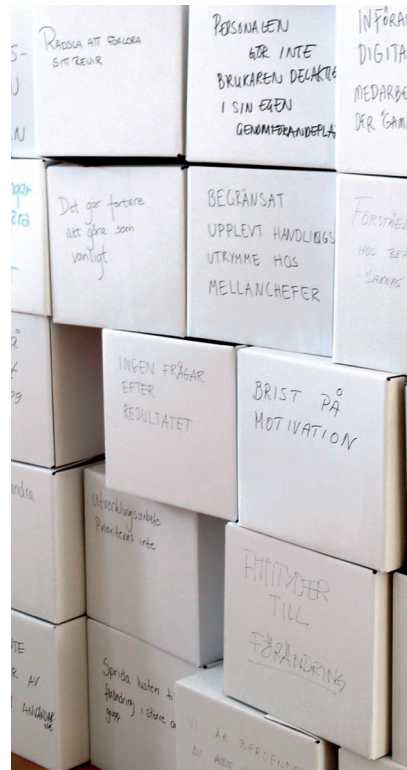 RÄDSLA ATT FÖRLORA
SITT REVIR
PERSONALEN
GÖR INTE
BRUKAREN
I SIN EGEN
INFÖRA
DIGITA
MEDARBE
DER GAM
Det går fortare
att göra som
vanligt
BEGRÄNSAT
UPPLEVT HANDLINGS
UTRYMME HOS
MELLANCHEFER
HOS
SAKNAS
INGEN FRÅGAR
EFTER
RESULTATET
BRIST PÅ
MOTIVATION
ndra
Utvecklingsarbete
Prioriteras inte
ATTITYDER
TILL
FÖRÄNDRING
AV
Sprida lusten
förändring i större
grupp
VI ÄR BEROENDE
AV ATT